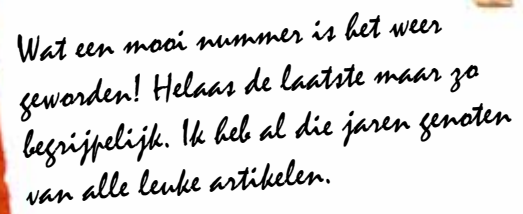 Wat een mooi nummer is het weer
geworden! Helaas de laatste maar zo
begrijpelijk. Ik heb al die jaren genoten
van alle leuke artikelen.